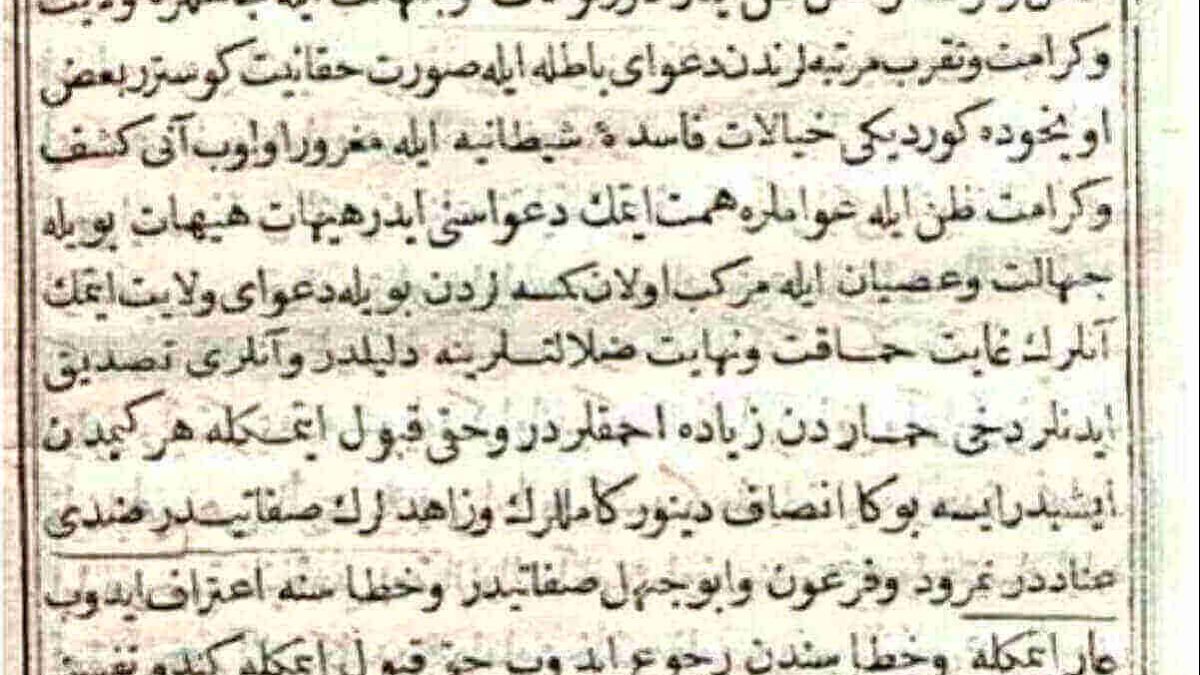 وكرامت وتقرب مرتبه لرندن دعواى باطله ايله صورت حقانيت كوستر بعض
اويخوده كورديكى خيالات فاسدهٔ شيطانيه ايله مغرور اولوب آنى كشف
وكرامت ظن ايله عواملره همت ايتمك دعواسنى ايدر هيهات هيهات بويله
جهالت وعصيان ايله مركب اولان كسه لردن بويله دعواى ولايت ايتمك
آنلرك غايت حماقت ونهايت ضلالتلرينه دليلدر وآنلرى تصديق
ايدنلر دخى حماردن زياده احمقلردر وحق قبول ايتمكله هر كيمدن
ايشيدرايسه بوكا انصاف دينور كاملرك وزاهدلرك صفاتيدر ضدى
عناددر نمرود وفرعون وابوجهل صفاتيدر وخطاسنه اعتراف ايدوب
عار ايتمكله وخطاسندن رجوع ايدوب حق قبول ايتمكله كندو نفسنى